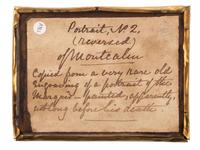 Portrait, No 2.
(reversed)
of Montcalm
Copied from a very rare old
Engraving of a portrait of the
Marquis painted, apparently,
not long before his death